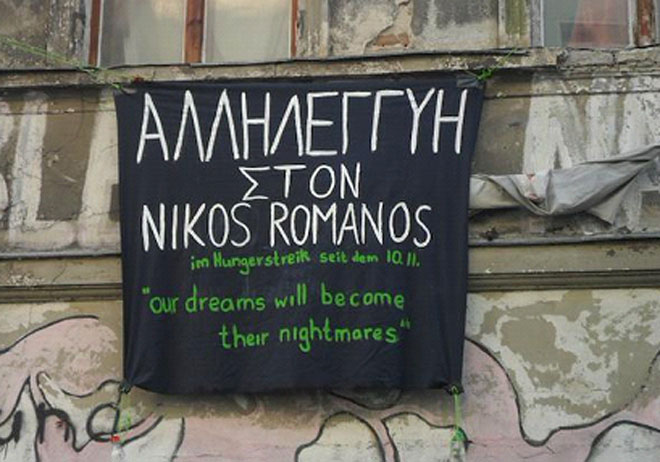 ΑΛΛΗΛΕΓΓΥΗ
ΣΤΟΝ
NIKOS ROMANOS
im Hungerstreik seit dem 10.11.
"our dreams will become
their nightmares"